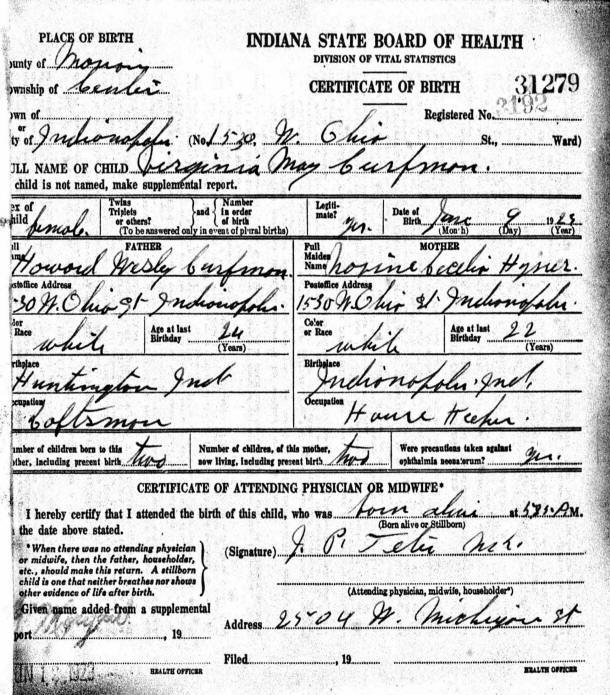 PLACE OF BIRTH
INDIANA STATE BOARD OF HEALTH
DIVISION OF VITAL STATISTICS
ounty of Marion
CERTIFICATE OF BIRTH 31279
ownship of Center
3192
own of
Registered No.
or
ty of Indianapolis (No. 1530, W. Ohio St., Ward)
ULL NAME OF CHILD Virginia May Curfman.
child is not named, make supplemental report.
ex of hild female.
Twins Triplets or others?
and
Number in order of birth
(To be answered only in event of plural births)
Legiti-mate? yes.
Date of Birth June 9 1923
(Month) (Day) (Year)
FATHER
MOTHER
ull ame Howard Wesley Curfman.
Full Maiden Name Cecelia
ostoffice Address
Postoffice Address
530 W. Ohio St Indianapolis.
1530 W. Ohio St Indianapolis.
olor Race white
Age at last Birthday 24 (Years)
Color or Race white
Age at last Birthday 22 (Years)
irthplace
Birthplace
Huntington Ind
Indianapolis Ind,
ccupation
Occupation
House Keeper.
umber of children born to this other, including present birth two
Number of children, of this mother, now living, including present birth two
Were precautions taken against ophthalmia neonatorum? yes.
CERTIFICATE OF ATTENDING PHYSICIAN OR MIDWIFE*
I hereby certify that I attended the birth of this child, who was born alive at A M.
(Born alive or Stillborn)
the date above stated.
*When there was no attending physician
or midwife, then the father, householder,
etc., should make this return. A stillborn
child is one that neither breathes nor shows
other evidence of life after birth.
(Signature) J. P. Teter
(Attending physician, midwife, householder*)
Given name added from a supplemental
port , 19
Address 2504 W. Michigan St
UN 1 1923
HEALTH OFFICER
Filed , 19
HEALTH OFFICER